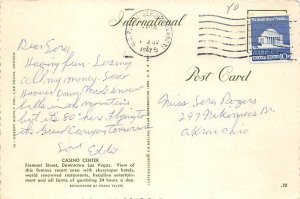 International
Post Card
1975
10c
Dear Sara,
Having fun - Losing
all my money. Saw
Hoover Dam. Made snow
balls in the mountains,
but its 80 here. Flying to
the Grand Canyon tomorrow
Love
Eddie
Miss Sara Rogers
Akron Ohio
CASINO CENTER
Fremont Street, Downtown Las Vegas. View of
this famous resort area with skyscraper hotels,
world renowned restaurants, headline entertain-
ment and all forms of gambling 24 hours a day.